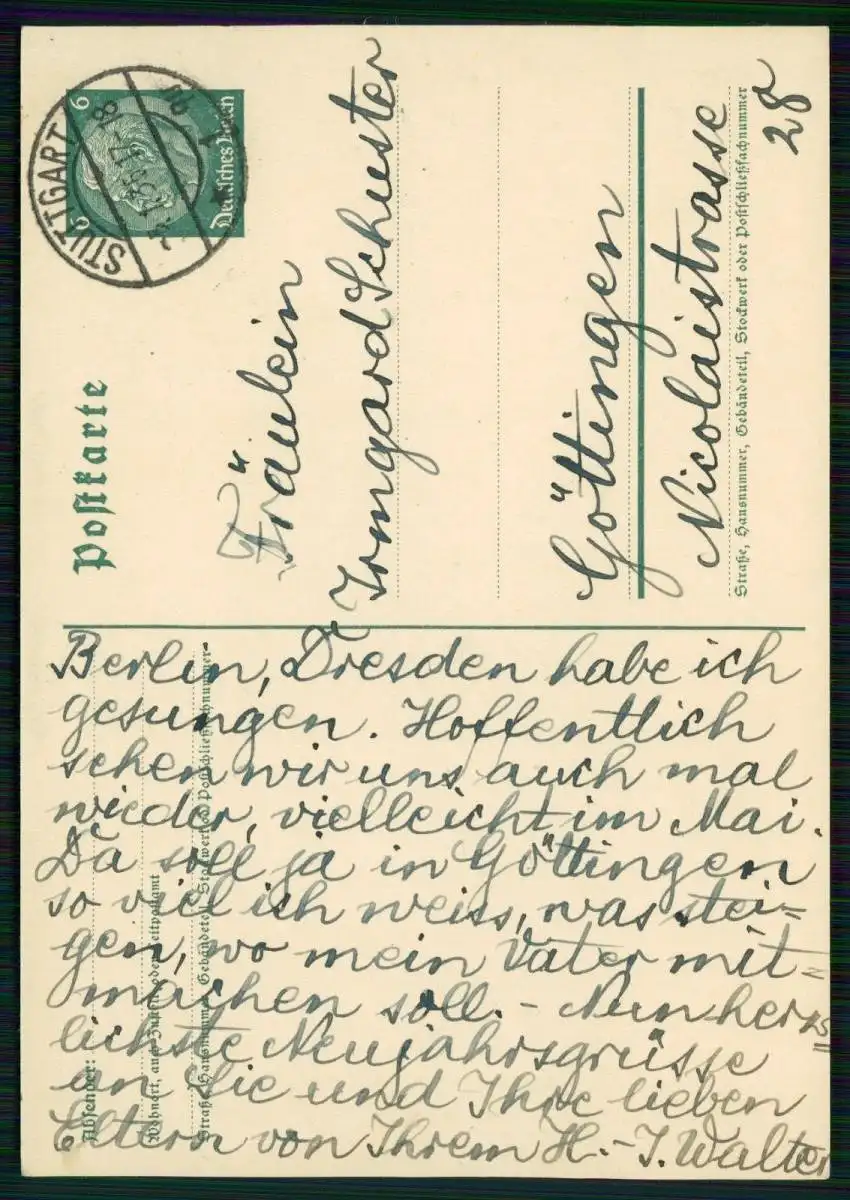 Postkarte
STUTTGART
6 6
Deutsches Reich
Fräulein
Irmgard Schuster
Göttingen
Nicolaistrasse
28
Straße, Hausnummer, Gebäudeteil, Stockwerk oder Postschließfachnummer
Berlin, Dresden habe ich
gesungen. Hoffentlich
sehen wir uns auch mal
wieder, vielleicht im Mai.
Da soll ja in Göttingen
so viel ich weiss, was stei=
gen, wo mein Vater mit=
machen soll. – Nun herz=
lichste Neujahrsgrüsse
an Sie und Ihre lieben
Eltern von Ihrem H.-J. Walter
Absender:
Wohnort, auch Zustell- oder Leitpostamt
Straße, Hausnummer, Gebäudeteil, Stockwerk od. Postschließfachnummer